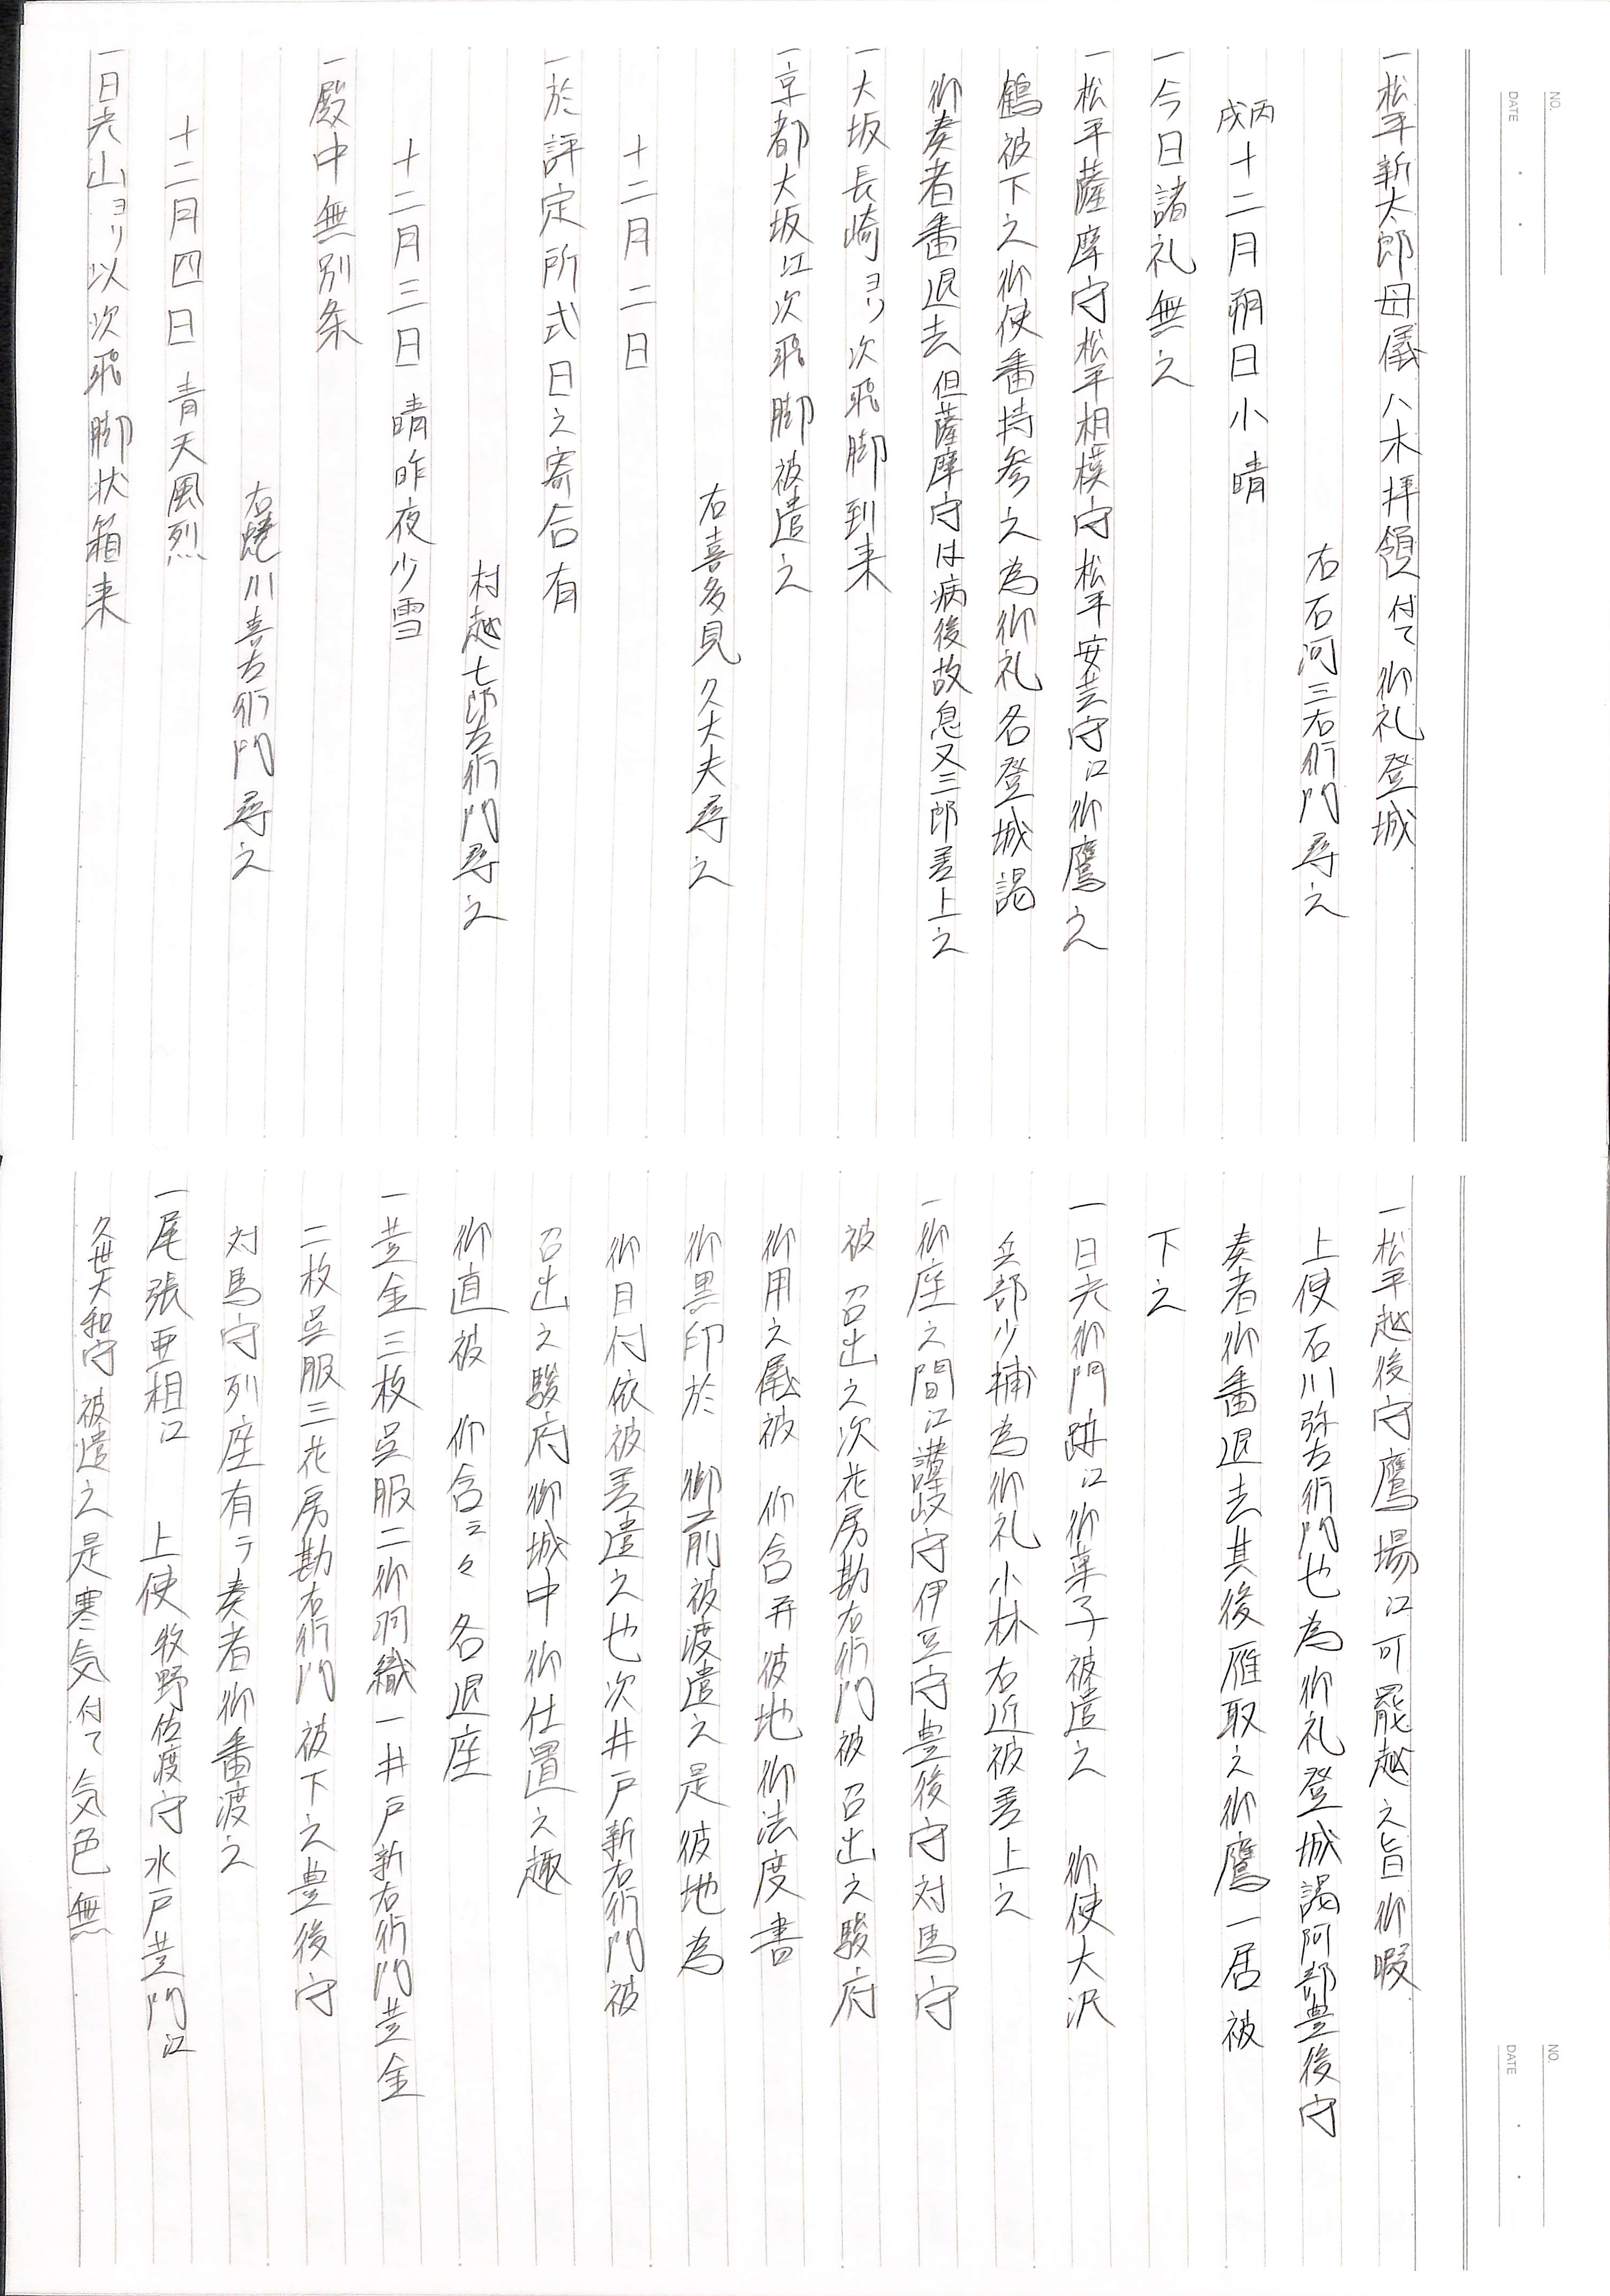 NO.
DATE
一松平新太郎母儀八木拝領付て御礼登城
右石河三右衛門尋之
丙戌十二月朔日小晴
一今日諸礼無之
一松平薩摩守松平相模守松平安芸守江御鷹之
鶴被下之御使番持参之為御礼各登城謁
御奏者番退去但薩摩守は病後故息又三郎差上之
一大坂長崎ヨリ次飛脚到来
一京都大坂江次飛脚被遣之
右喜多見久大夫尋之
十二月二日
一於評定所式日之寄合有
村越七郎左衛門尋之
十二月三日 晴昨夜少雪
一殿中無別条
右蜷川喜左衛門尋之
十二月四日 青天風烈
一日光山ヨリ以次飛脚状箱来
NO.
DATE
一松平越後守鷹場江可罷越之旨御暇
上使石川弥左衛門也為御礼登城謁阿部豊後守
奏者御番退去其後雁取之御鷹一居被
下之
一日光御門跡江御菓子被遣之 御使大沢
兵部少輔為御礼小林右近被差上之
一御座之間江讃岐守伊豆守豊後守対馬守
被召出之次花房勘右衛門被召出之駿府
御用之儀被 仰含并彼地御法度書
御黒印於 御前被渡遣之是彼地為
御目付依被差遣之也次井戸新右衛門被
召出之駿府御城中御仕置之趣
御直被 仰含云々 各退座
一黄金三枚呉服二御羽織一井戸新右衛門黄金
二枚呉服三花房勘右衛門被下之豊後守
対馬守列座有テ奏者御番渡之
一尾張亜相江 上使牧野佐渡守水戸黄門江
久世大和守被遣之是寒気付て気色無